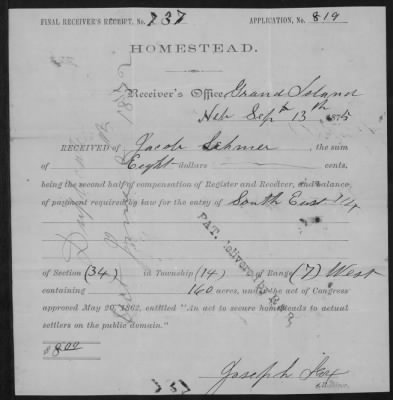 FINAL RECEIVER'S RECEIPT, No. 737 APPLICATION, No. 819
HOMESTEAD.
Receiver's Office, Grand Island
Neb Sept 13th, 1875
RECEIVED of Jacob Schmer, the sum
of Eight dollars cents,
being the second half of compensation of Register and Receiver, and balance
of payment required by law for the entry of South East 1/4
of Section (34) in Township (14) of Range (7) West
containing 160 acres, under the act of Congress
approved May 20, 1862, entitled "An act to secure homesteads to actual
settlers on the public domain."
$8.00
Joseph
PAT. Delivered
737